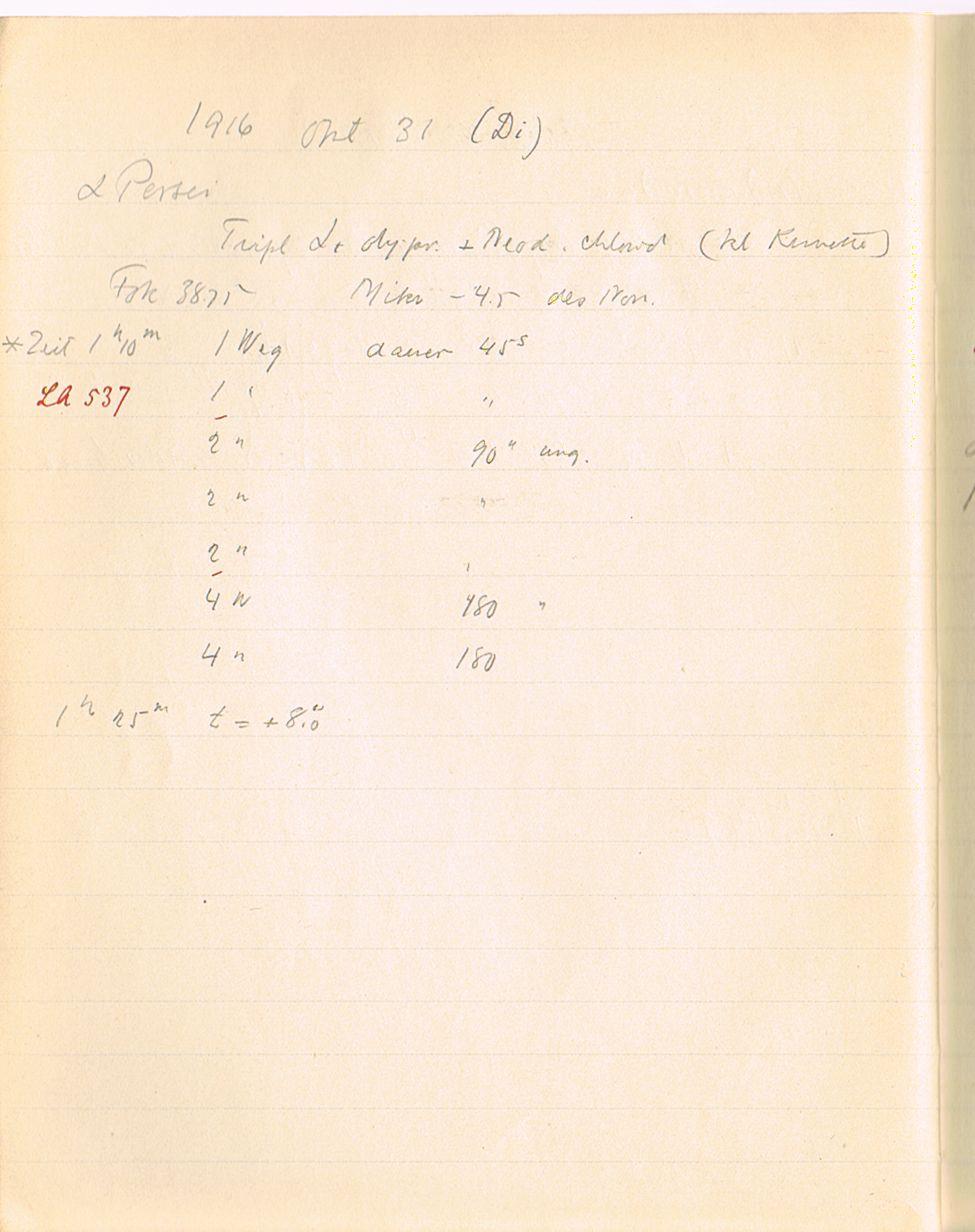 1916 Okt 31 (Di)
α Persei
Tripl + Neod. chlorid (kl Küvette)
Fok 38.75 Mikr -4.5 des Non.
*Zeit 1h10m 1 Weg dauer 45s
LA 537 1 " "
2 " 90" ung.
2 " "
2 " "
4 W 180 "
4 " 180
1h 25m t = +8.°0